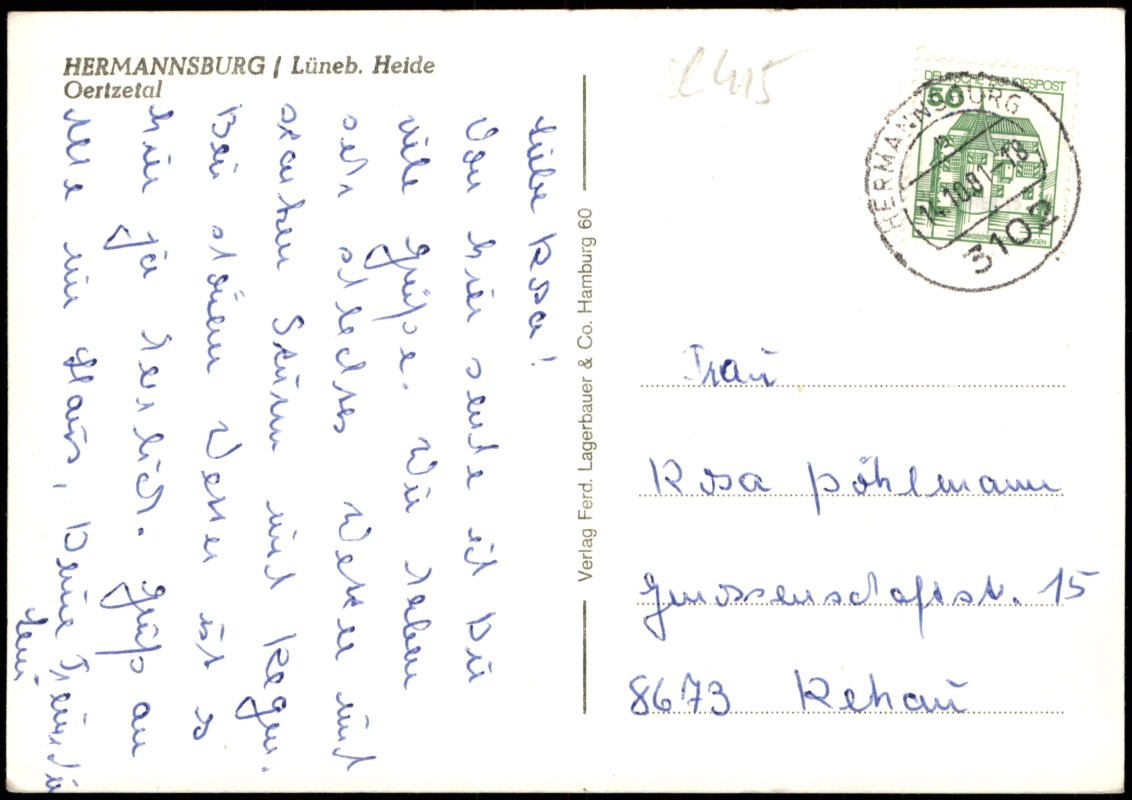 HERMANNSBURG / Lüneb. Heide
Oertzetal
Liebe Rosa!
Von hier sende ich Dir
viele Grüße. Wir haben
sehr slechtes Wetter mit
starken Sturm und Regen.
Bei schönem Wetter ist s
hier ja herlich. Gruß an
Alle im Haus, Deine Freundin
Leni
Verlag Ferd. Lagerbauer & Co. Hamburg 60
DEUTSCHE BUNDESPOST
50
HERMANNSBURG
14.10.81-18
3102
Frau
Rosa Pöhlmann
Genossenschaftst. 15
8673 Rehau